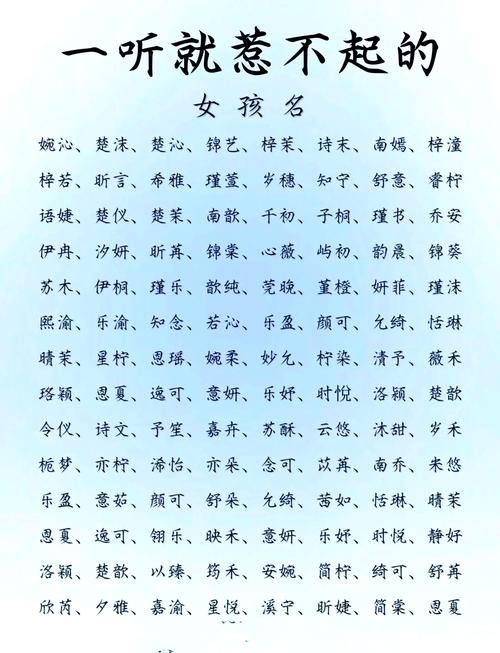 一听就惹不起的
女孩名
婉沁、楚沫、楚沁、锦艺、梓茉、诗末、南嫣、梓潼
梓若、昕言、希雅、瑾萱、岁穗、知宁、舒意、睿柠
语婕、楚仪、楚茉、南歆、千初、子桐、瑾书、乔安
伊冉、汐妍、昕苒、锦棠、心薇、屿初、韵晨、锦葵
苏木、伊桐、瑾乐、歆纯、莞晚、堇橙、妍菲、瑾沫
熙渝、乐渝、知念、若沁、乐盈、颜可、允绮、恬琳
晴茉、星柠、思瑶、婉柔、妙允、柠染、清予、薇禾
珞颖、思夏、逸可、意妍、乐妤、时悦、洛颖、楚歆
令仪、诗文、予笙、嘉卉、苏酥、云悠、沐甜、岁禾
栀梦、亦柠、浠怡、亦朵、念可、苡苒、南乔、来悠
乐盈、意茹、颜可、舒朵、允绮、茜如、恬琳、晴茉
思夏、逸可、翎乐、映禾、意妍、乐妤、时悦、静好
洛颖、楚歆、以臻、筠禾、安婉、简柠、绮可、舒苒
欣芮、夕雅、嘉渝、星悦、溪宁、昕婕、简棠、思夏